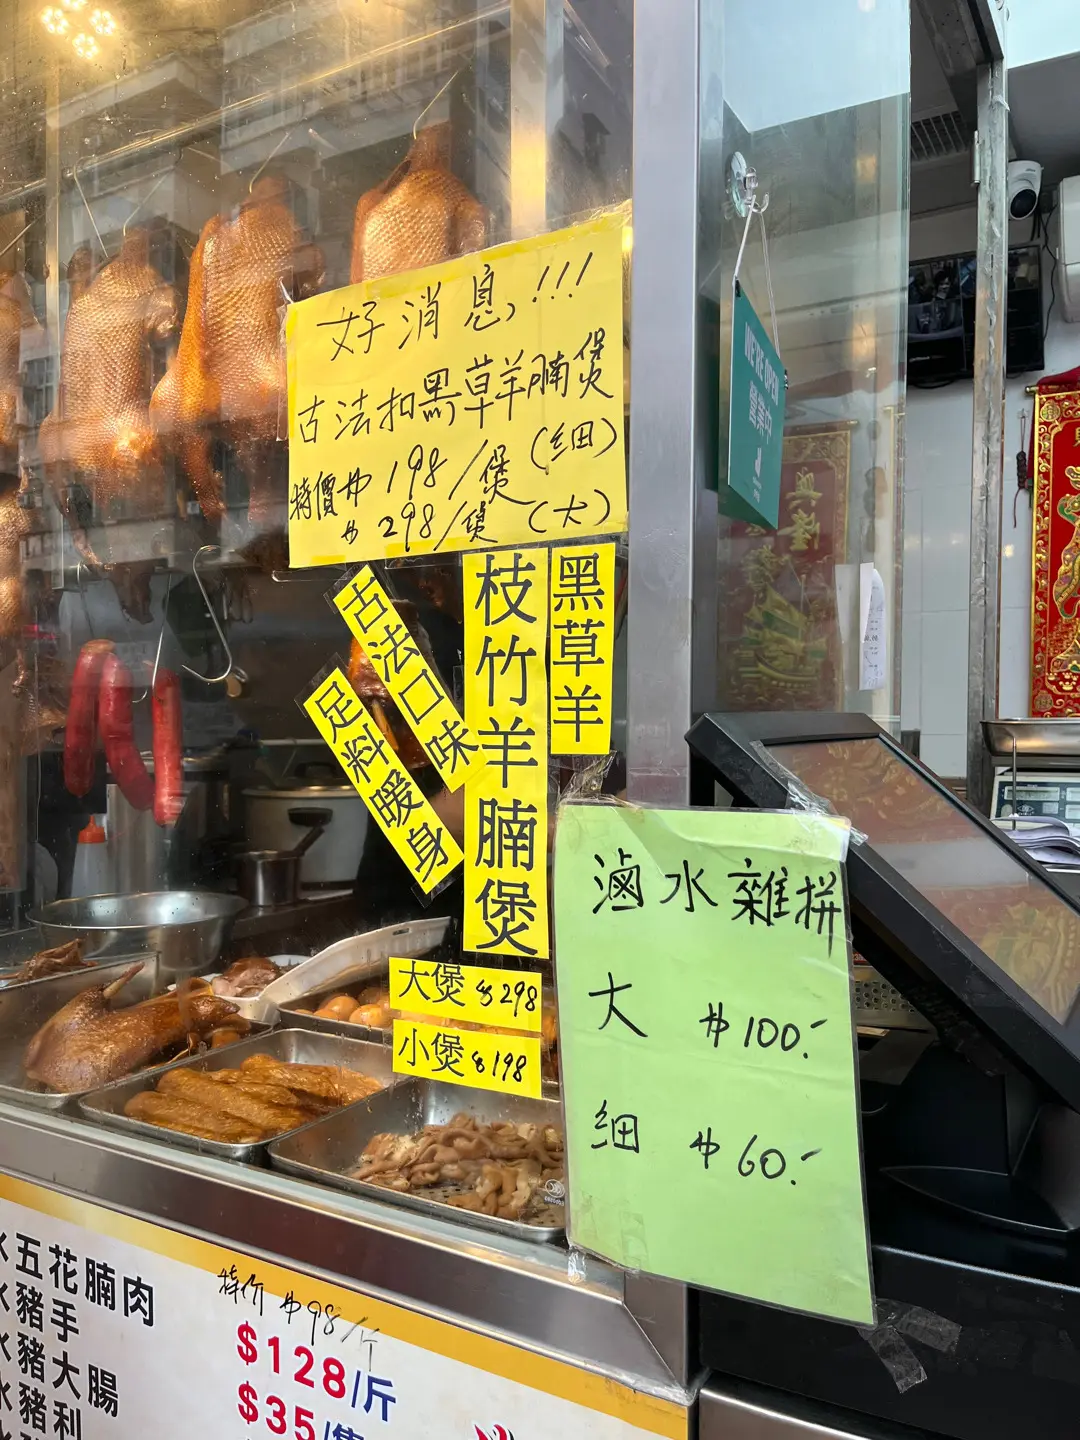 好消息!!!
古法扣黑草羊腩煲
特價$198/煲(細)
$298/煲(大)
古法口味
足料暖身
枝竹羊腩煲
黑草羊
大煲$298
小煲$198
滷水雜拼
大 $100.-
細 $60.-
WE'RE OPEN
營業中
水五花腩肉
水豬手
水豬大腸
水豬利
特价$98/斤
$128/斤
$35/隻